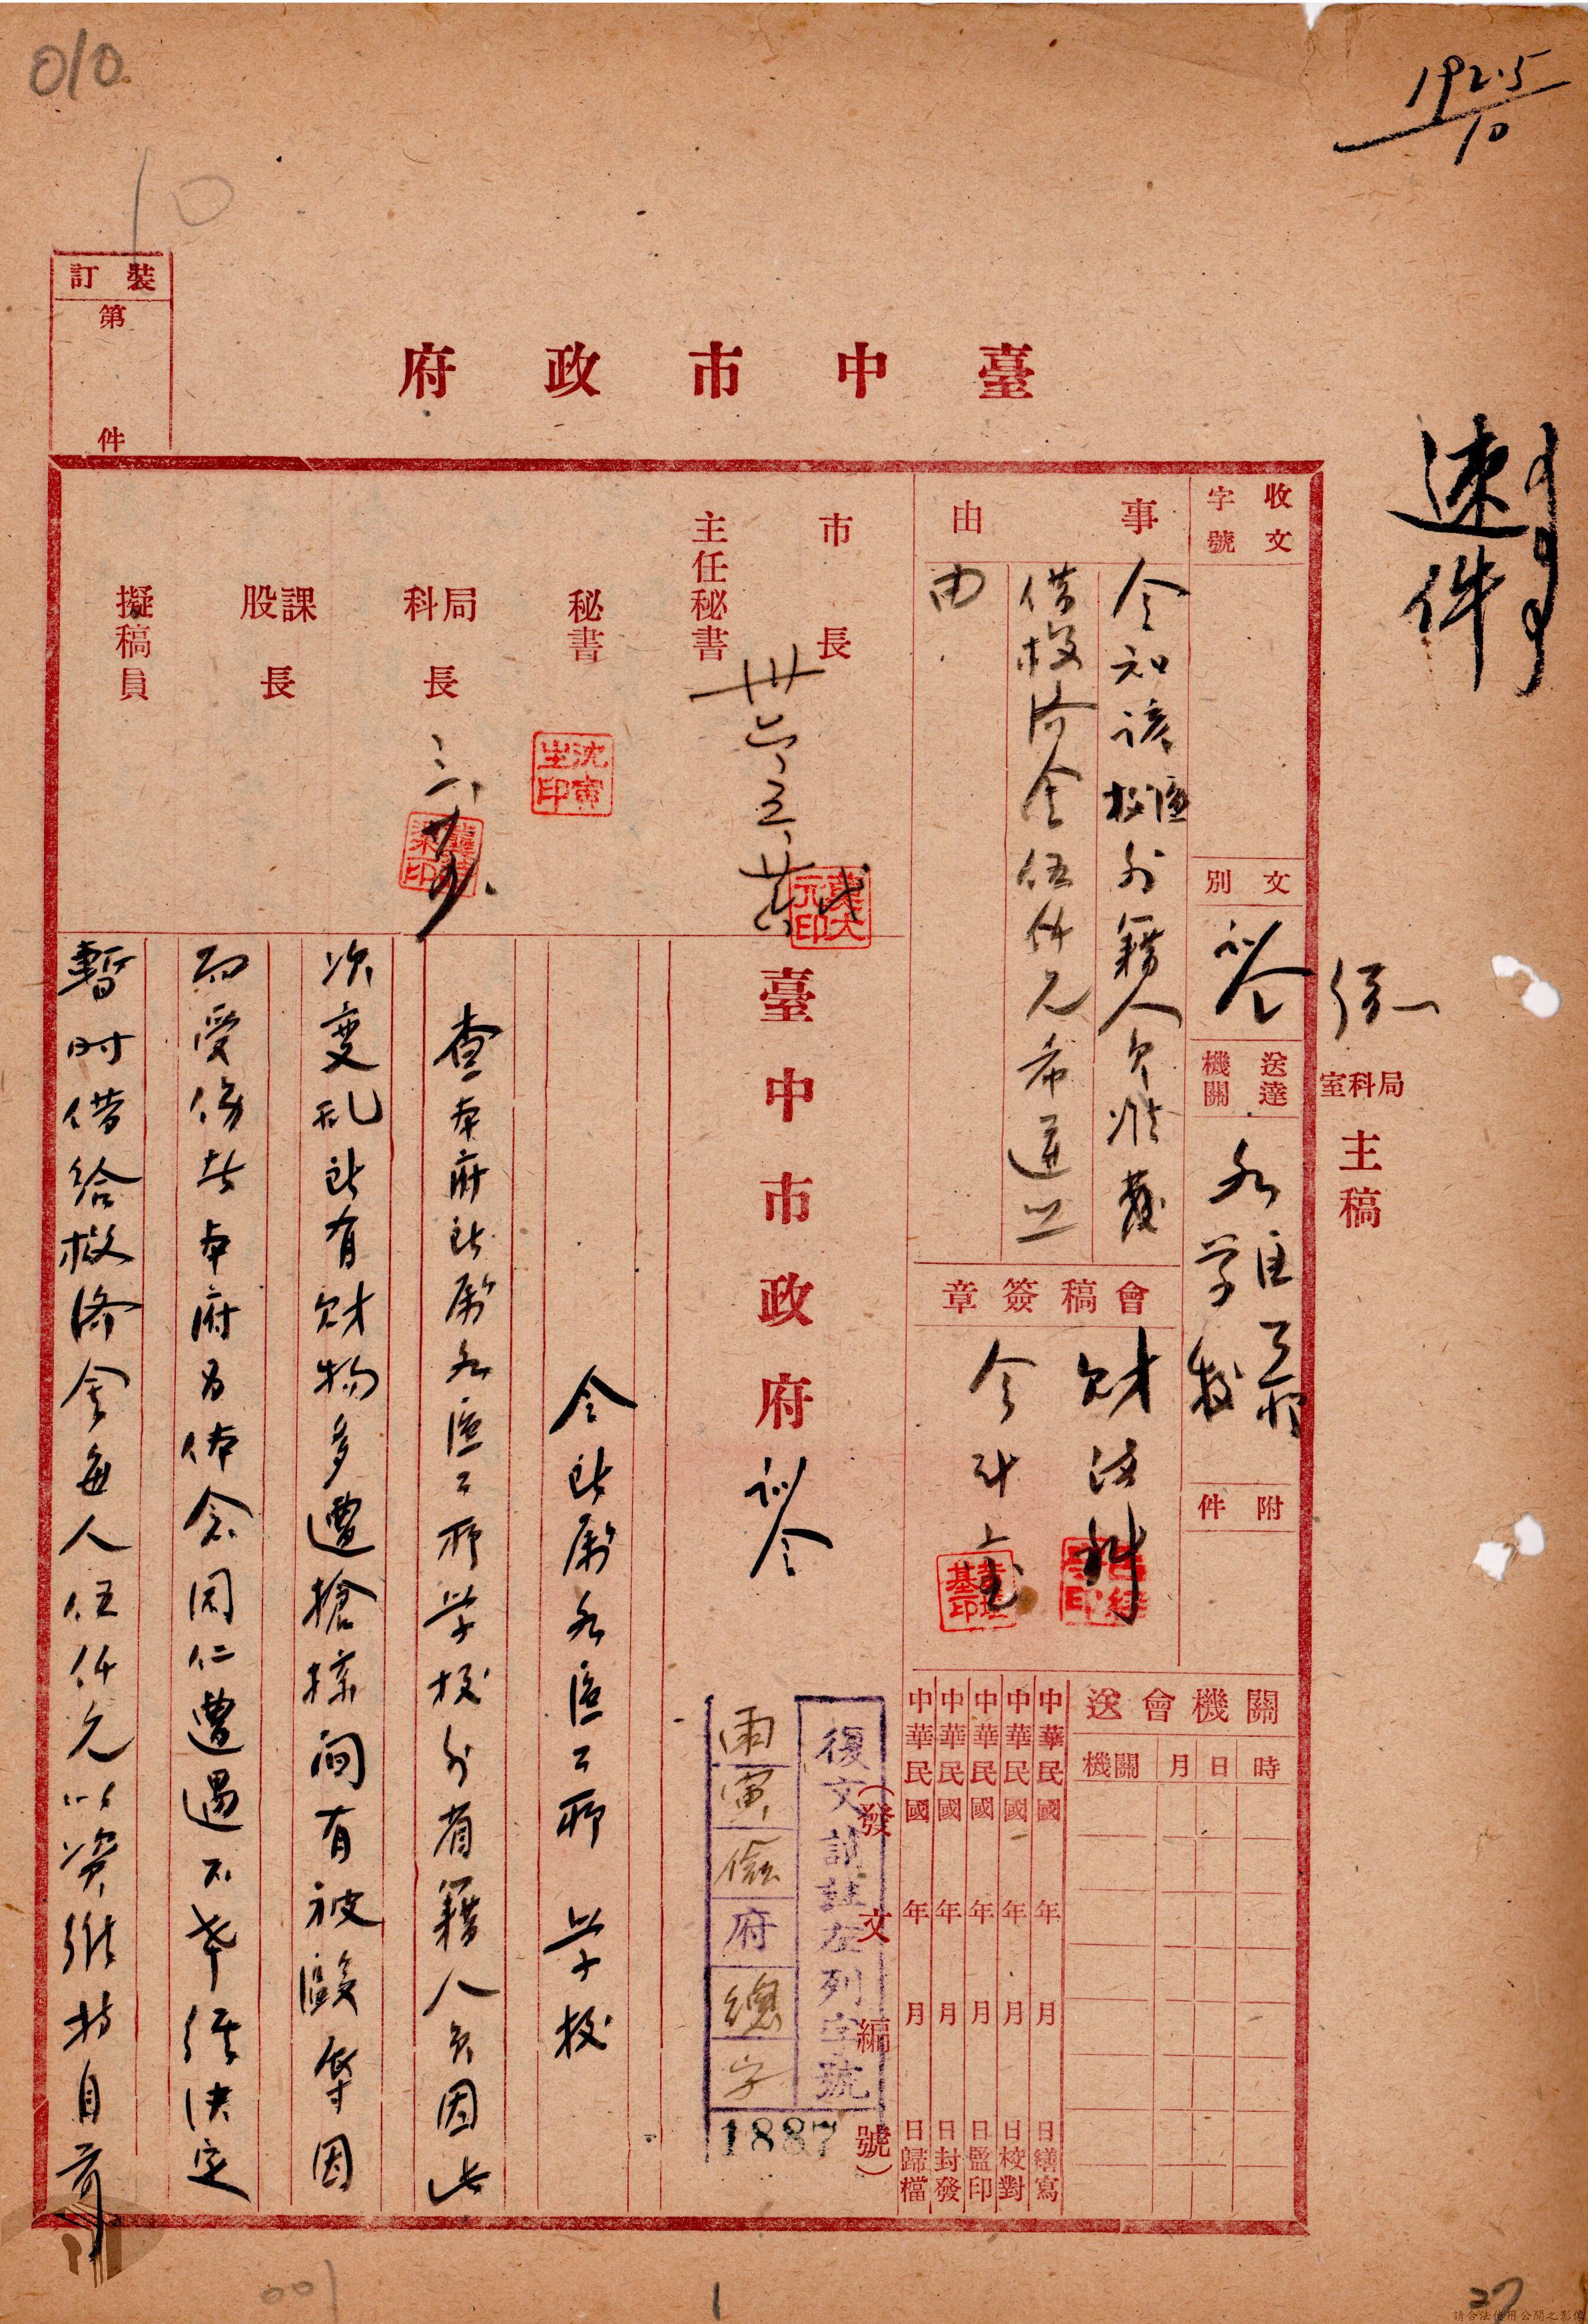 010
192.5
10
10
裝訂
第
件
臺中市政府
速件
收文
字號
事由
令知該區校外籍人員准發
借救濟金伍仟元希遵照
由
文別
訓令
送達機關
各區公所
學校
附件
局科室
主稿
會稿簽章
財政科
會計室
市長
主任秘書
秘書
沈寅生印
局科長
課股長
擬稿員
關機會送
時日月機關
中華民國 年 月 日繕寫
中華民國 年 月 日校對
中華民國 年 月 日監印
中華民國 年 月 日封發
中華民國 年 月 日歸檔
(發文編號)
復文請註左列字號
丙寅儉府總字
1887
臺中市政府訓令
令所屬各區公所 學校
查本府所屬各區公所學校外省籍人員因此
次變亂所有財物多遭搶掠間有被毆辱因
而受傷者本府為体念同仁遭遇不幸經決定
暫时借給救濟金每人伍仟元以資維持自可
001
1
27
請合法使用公開之影像